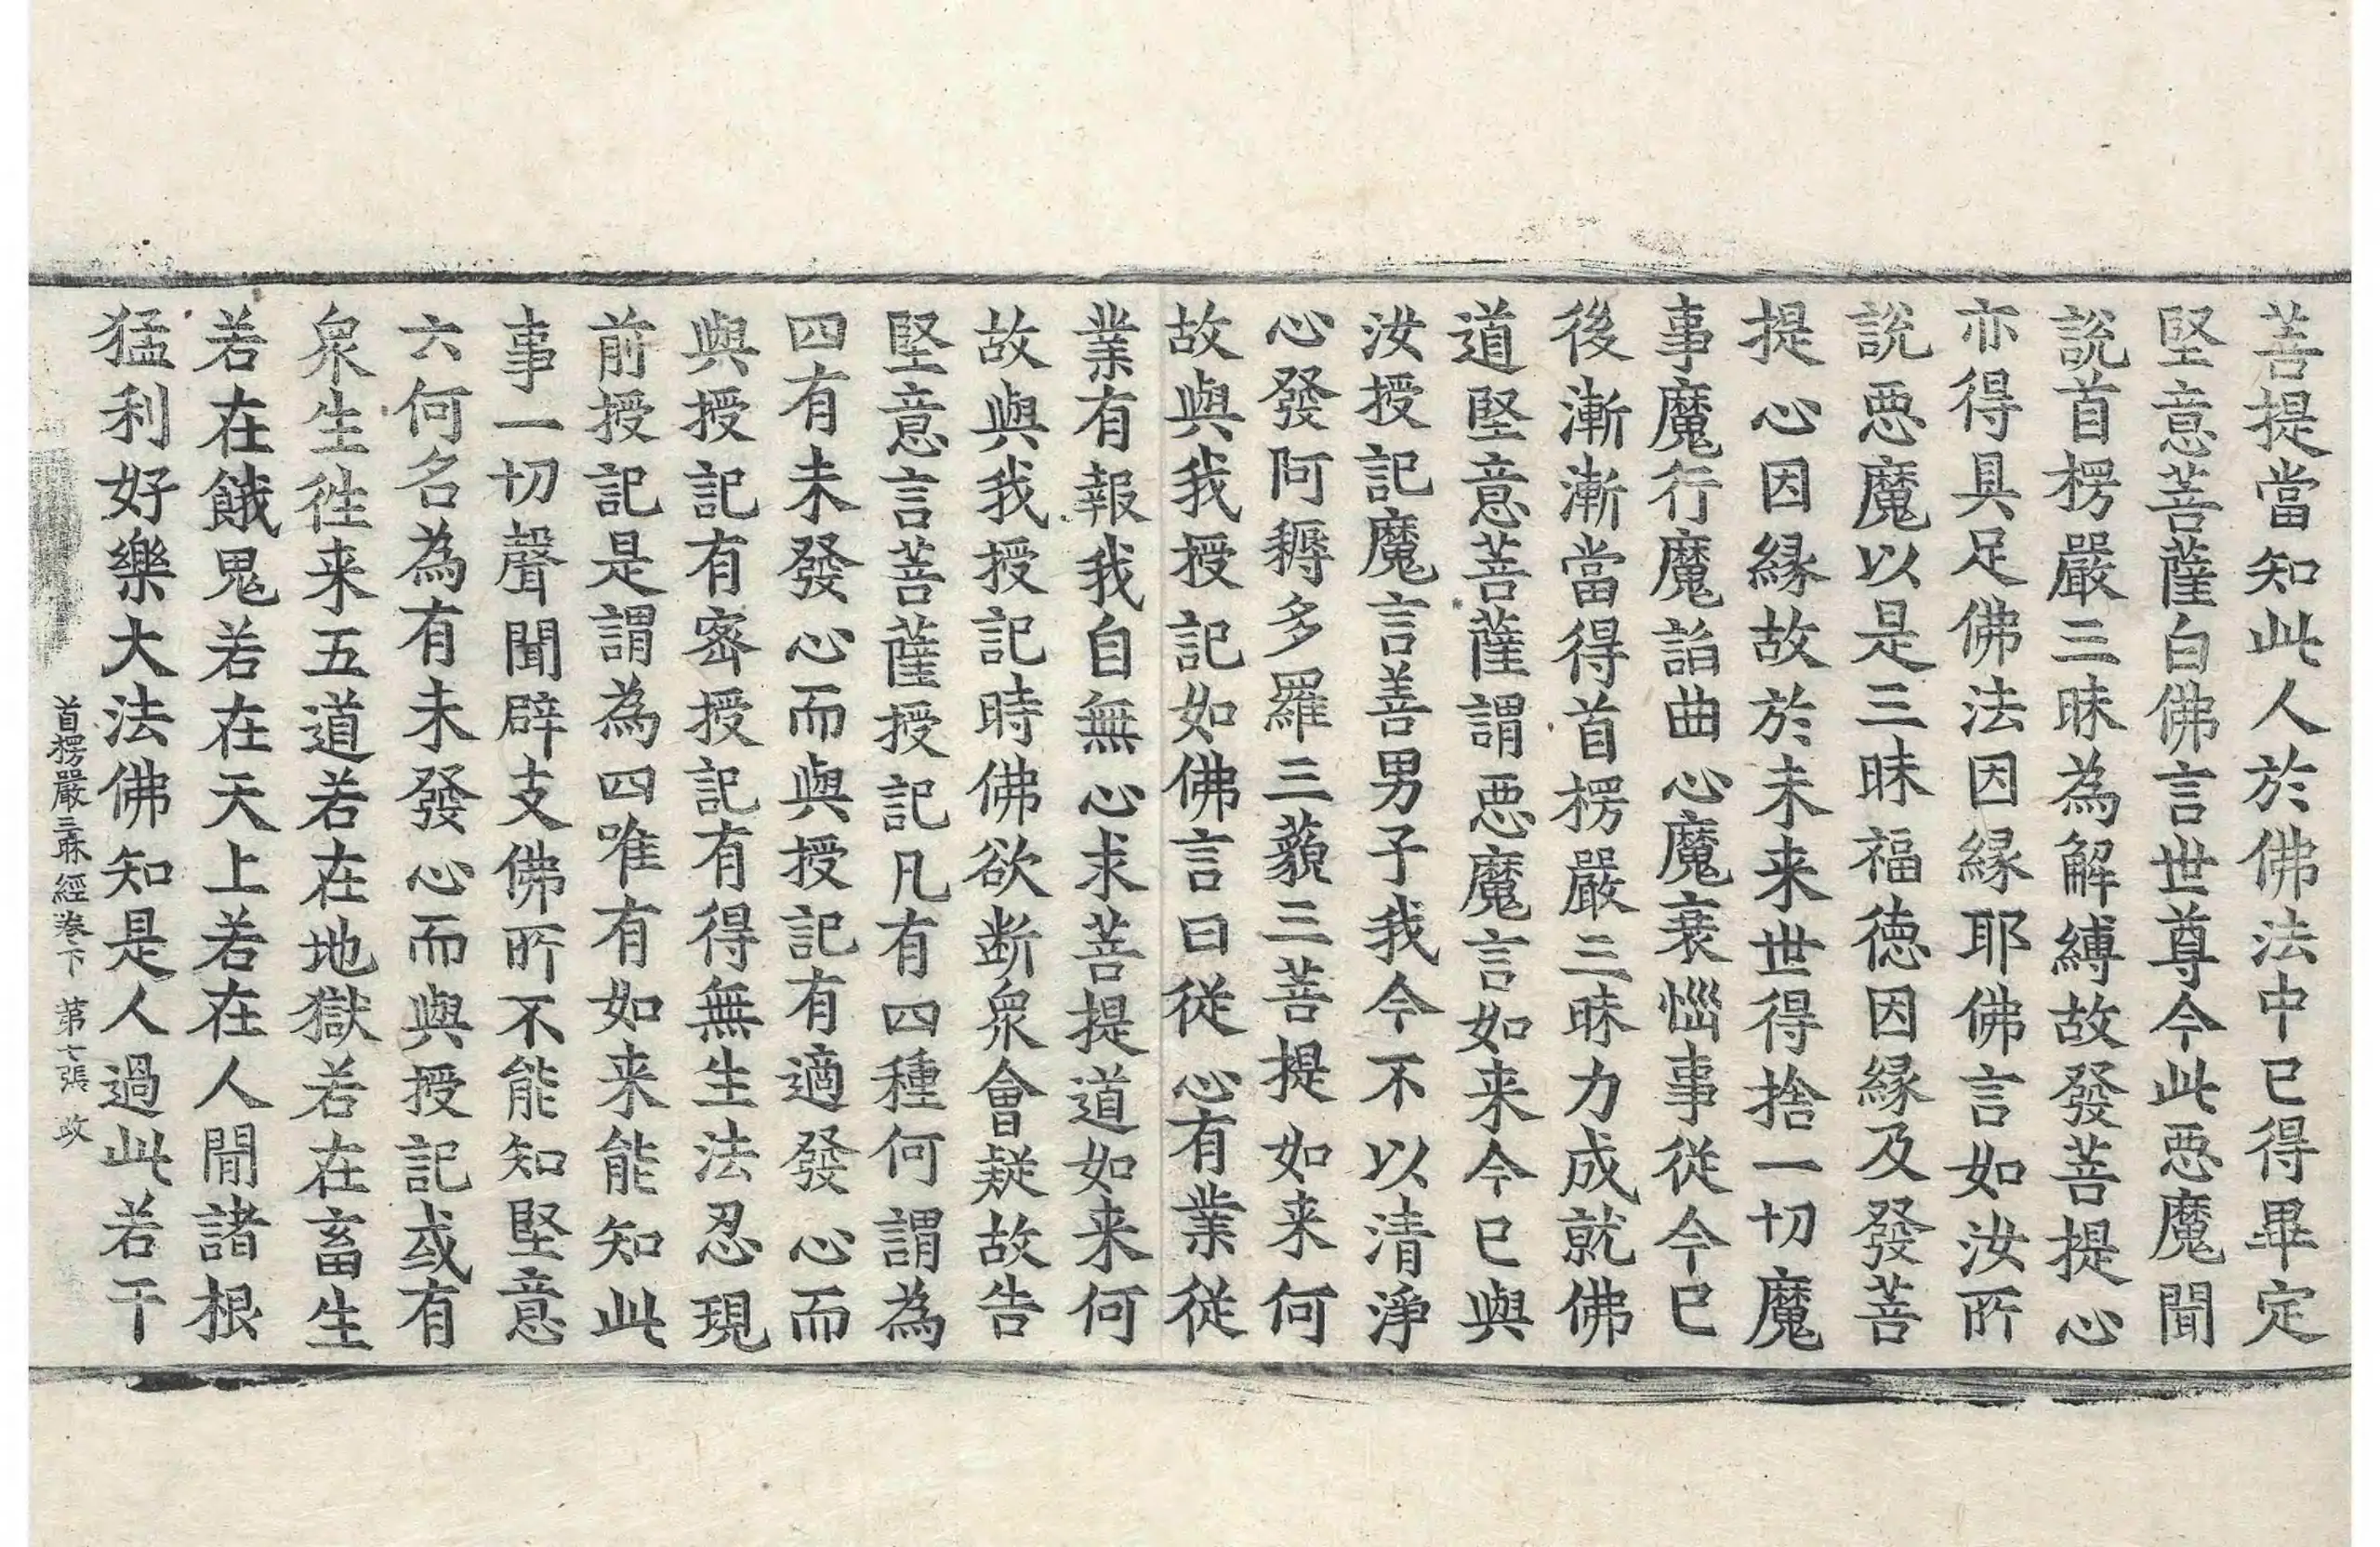 菩提當知此人於佛法中已得畢定
堅意菩薩白佛言世尊今此惡魔聞
說首楞嚴三昧為解縛故發菩提心
亦得具足佛法因緣耶佛言如汝所
說惡魔以是三昧福德因緣及發菩
提心因緣故於未来世得捨一切魔
事魔行魔諂曲心魔衰惱事從今已
後漸漸當得首楞嚴三昧力成就佛
道堅意菩薩謂惡魔言如来今已與
汝授記魔言善男子我今不以清淨
心發阿耨多羅三藐三菩提如来何
故與我授記如佛言曰從心有業從
業有報我自無心求菩提道如来何
故與我授記時佛欲斷衆會疑故告
堅意言菩薩授記凡有四種何謂為
四有未發心而與授記有適發心而
與授記有密授記有得無生法忍現
前授記是謂為四唯有如来能知此
事一切聲聞辟支佛所不能知堅意
六何名為有未發心而與授記或有
衆生徃来五道若在地獄若在畜生
若在餓鬼若在天上若在人間諸根
猛利好樂大法佛知是人過此若干
首楞嚴三昧經卷下 第七張 政